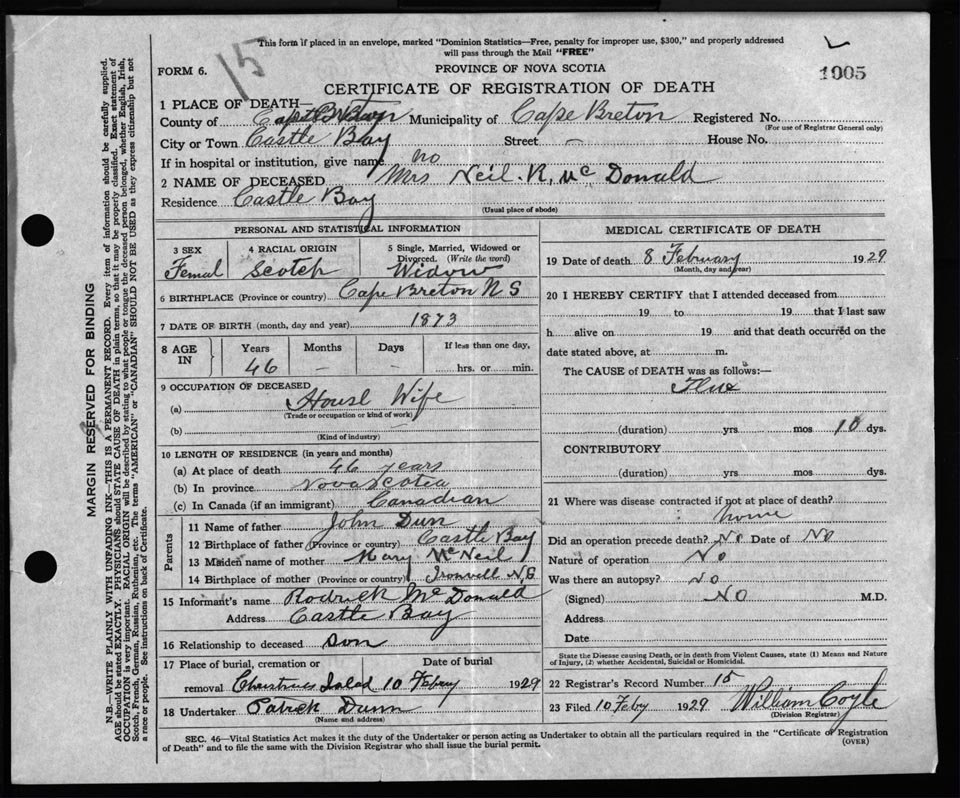 15
This form if placed in an envelope, marked "Dominion Statistics—Free, penalty for improper use, $300," and properly addressed
will pass through the Mail "FREE"
FORM 6.
PROVINCE OF NOVA SCOTIA
1005
CERTIFICATE OF REGISTRATION OF DEATH
1 PLACE OF DEATH—
County of Cape Breton Municipality of Cape Breton Registered No.
(For use of Registrar General only)
City or Town Castle Bay Street — House No.
If in hospital or institution, give name no
2 NAME OF DECEASED Mrs Neil. R. Mc Donald
Residence Castle Bay
(Usual place of abode)
PERSONAL AND STATISTICAL INFORMATION
3 SEX Femal
4 RACIAL ORIGIN Scotch
5 Single, Married, Widowed or
Divorced. (Write the word)
Widow
6 BIRTHPLACE (Province or country) Cape Breton N S
7 DATE OF BIRTH (month, day and year) 1873
8 AGE IN Years Months Days If less than one day,
46 — — hrs. or min.
9 OCCUPATION OF DECEASED
(a) House Wife
(Trade or occupation or kind of work)
(b)
(Kind of industry)
10 LENGTH OF RESIDENCE (in years and months)
(a) At place of death 46 years
(b) In province Nova Scotia
(c) In Canada (if an immigrant) Canadian
Parents
11 Name of father John Dun
12 Birthplace of father (Province or country) Castle Bay
13 Maiden name of mother Mary McNeil
14 Birthplace of mother (Province or country) N,S
15 Informant's name Rodrick McDonald
Address Castle Bay
16 Relationship to deceased son
17 Place of burial, cremation or Date of burial
removal 10 Febry 1929
18 Undertaker Patrick Dunn
(Name and address)
MEDICAL CERTIFICATE OF DEATH
19 Date of death 8 February 1929
(Month, day and year)
20 I HEREBY CERTIFY that I attended deceased from
19 to 19 that I last saw
h alive on 19 and that death occurred on the
date stated above, at m.
The CAUSE of DEATH was as follows:—
Flue
(duration) yrs mos 10 dys.
CONTRIBUTORY
(duration) yrs mos dys.
21 Where was disease contracted if not at place of death?
home
Did an operation precede death? No Date of No
Nature of operation No
Was there an autopsy? No
(Signed) No M.D.
Address
Date
State the Disease causing Death, or in death from Violent Causes, state (1) Means and Nature
of Injury, (2) whether Accidental, Suicidal or Homicidal.
22 Registrar's Record Number 15
23 Filed 10 Febry 1929 William Coyle
(Division Registrar)
SEC. 46—Vital Statistics Act makes it the duty of the Undertaker or person acting as Undertaker to obtain all the particulars required in the "Certificate of Registration
of Death" and to file the same with the Division Registrar who shall issue the burial permit.
(OVER)
MARGIN RESERVED FOR BINDING
N.B.—WRITE PLAINLY WITH UNFADING INK—THIS IS A PERMANENT RECORD. Every item of information should be carefully supplied.
AGE should be stated EXACTLY. PHYSICIANS should STATE CAUSE OF DEATH in plain terms, so that it may be properly classified. Exact statement of
OCCUPATION is very important. RACIAL ORIGIN will be described by stating to what people or tongue the deceased person belonged, whether English, Irish,
Scotch, French, German, Russian, Ruthenian, etc. The terms "AMERICAN" or "CANADIAN" SHOULD NOT BE USED as they express citizenship but not
a race or people. See instructions on back of Certificate.